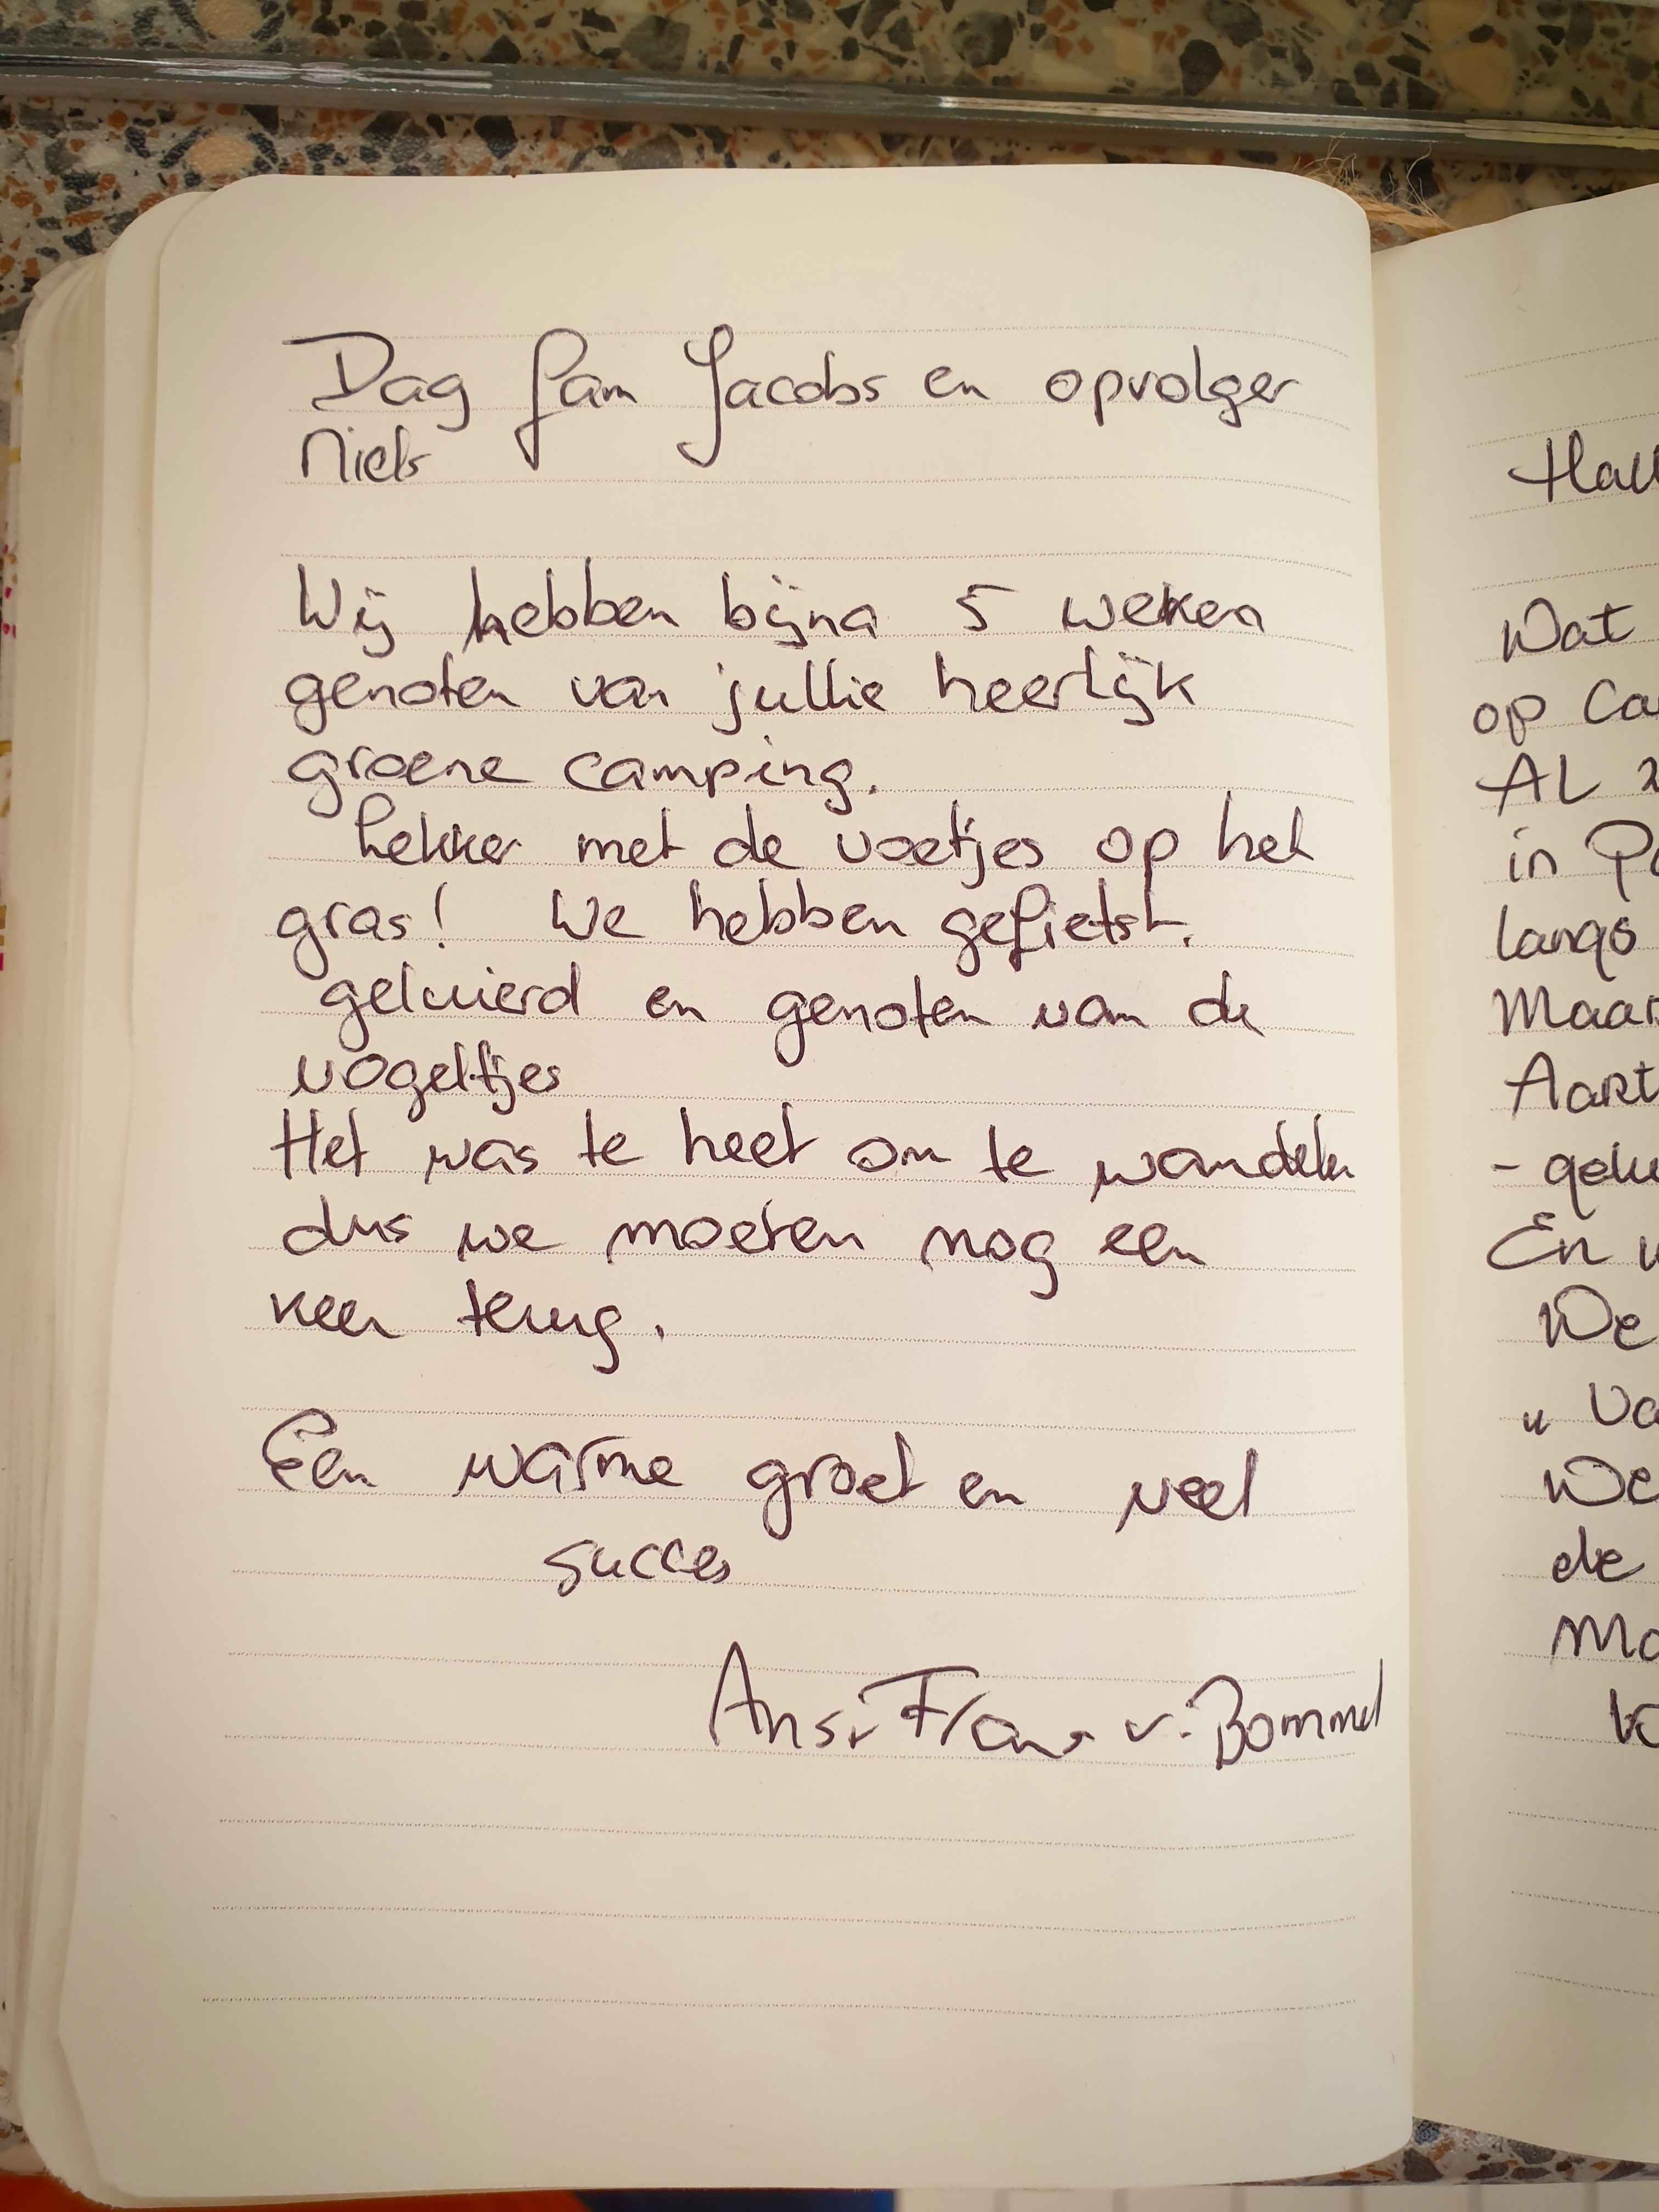 Dag fam Jacobs en opvolger
Niels
Wij hebben bijna 5 weken
genoten van jullie heerlijk
groene camping.
Lekker met de voetjes op het
gras! We hebben gefietst.
geluierd en genoten van de
vogeltjes
Het was te heet om te wandelen
dus we moeten nog een
keer terug.
Een warme groet en veel
succes
Ans + Frans v. Bommel
Hall
Wat
op Ca
AL 2
in
langs
Maar
Aart
- gelu
En
We
" Va
We
de
Ma